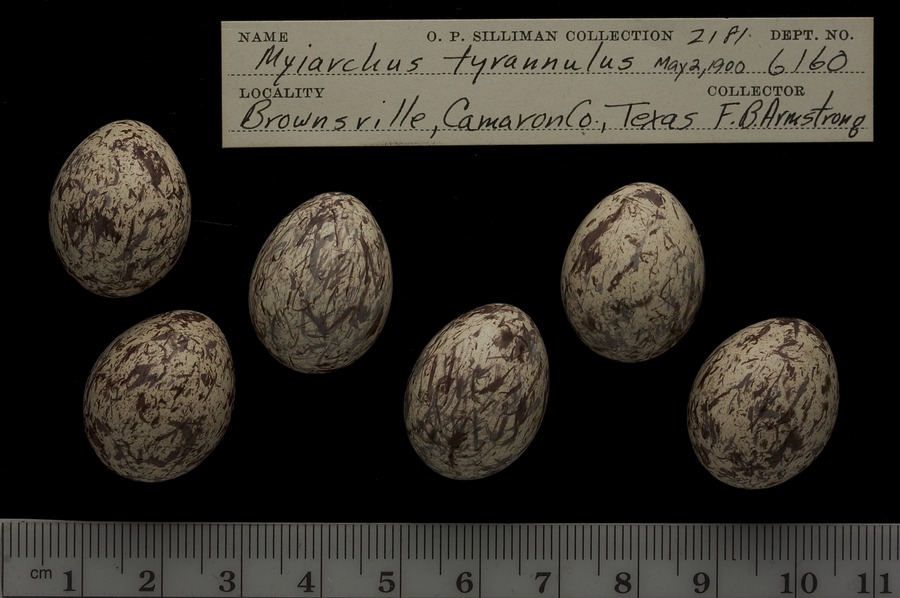 NAME O. P. SILLIMAN COLLECTION 2181. DEPT. NO.
Myiarchus tyrannulus May 2, 1900 6160
LOCALITY COLLECTOR
Brownsville, Camaron Co., Texas F. B. Armstrong
cm 1 2 3 4 5 6 7 8 9 10 11